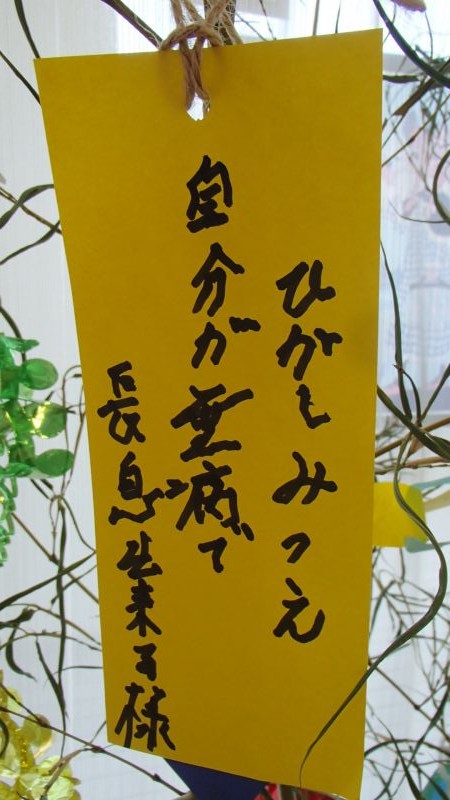 ひがしみつえ
自分が無病で
長息出来る様